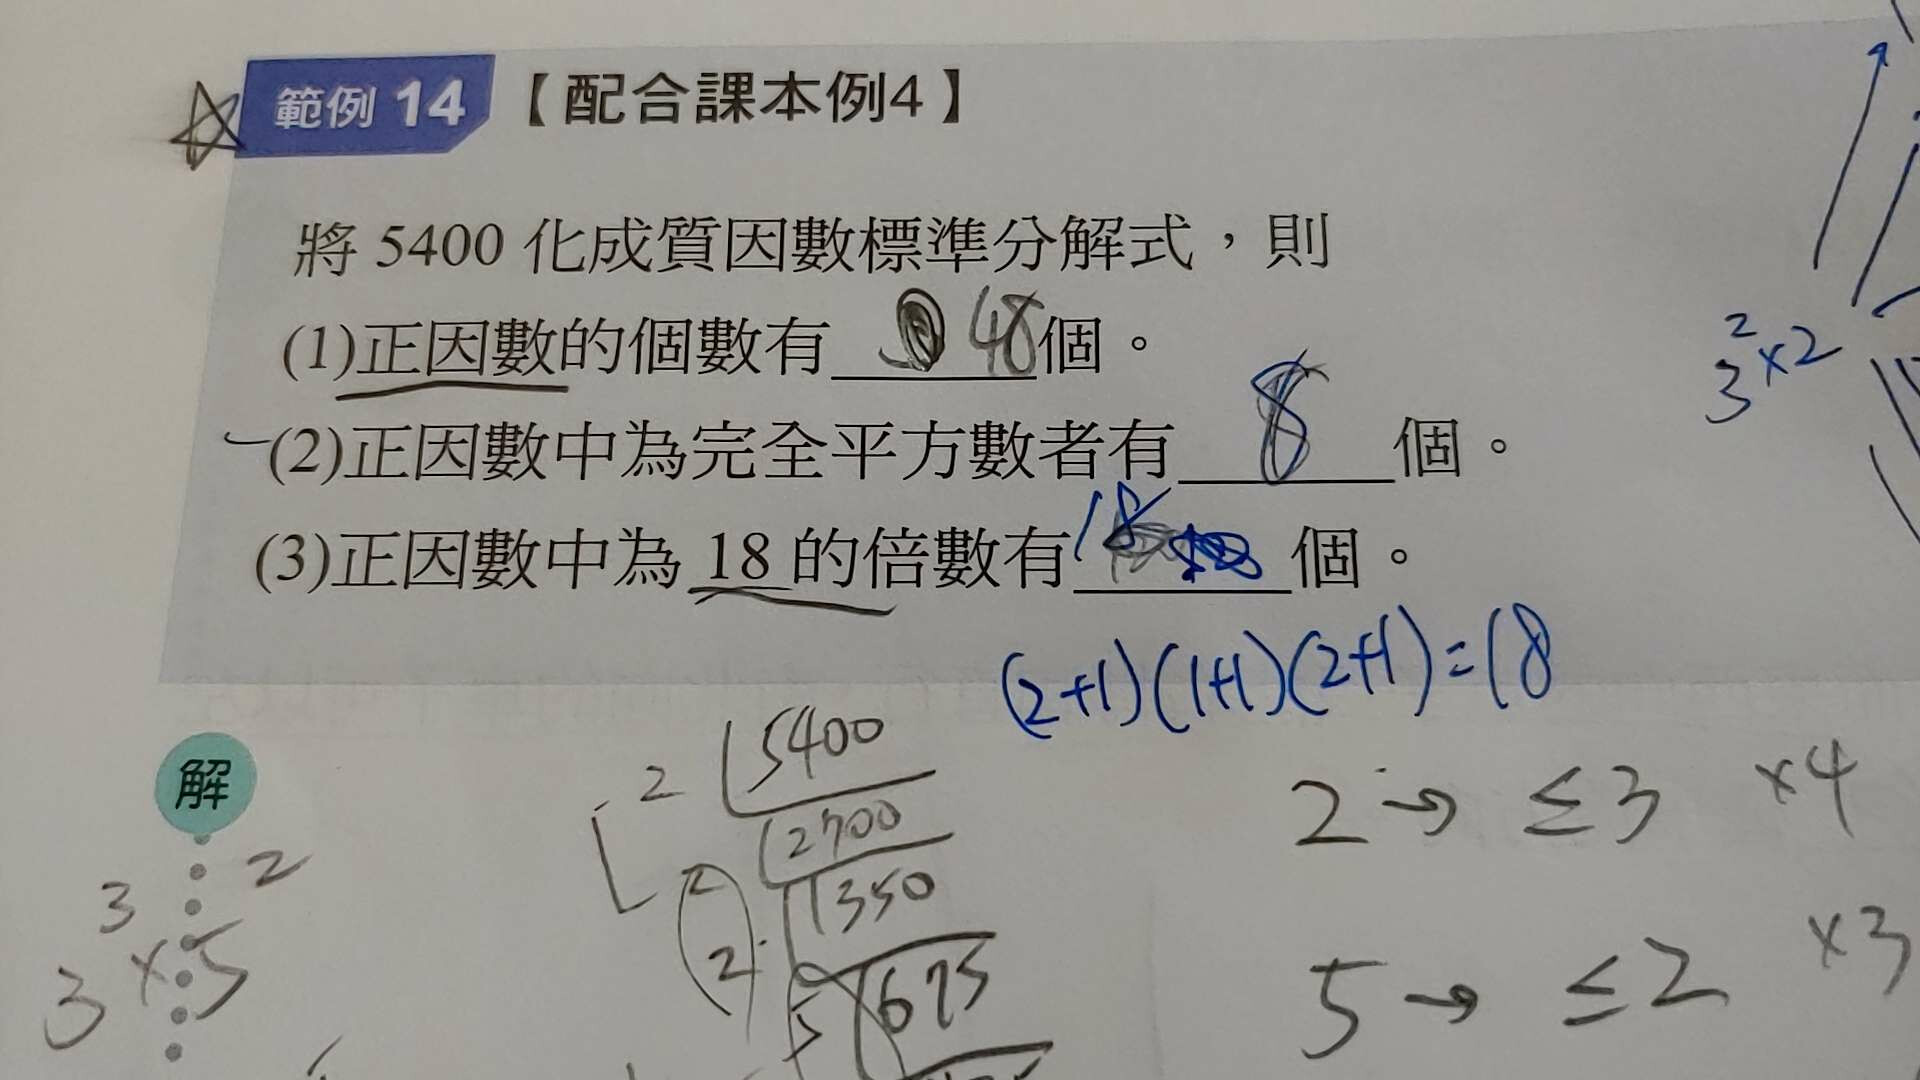 範例 14 【配合課本例4】
將 5400 化成質因數標準分解式,則
(1)正因數的個數有 48 個。
3² × 2
(2)正因數中為完全平方數者有 8 個。
(3)正因數中為 18 的倍數有 18 個。
(2+1)(1+1)(2+1)=18
解
2 5400
2 2700
2 1350
5 675
3³ × 5²
2 → ≤3 ×4
5 → ≤2 ×3